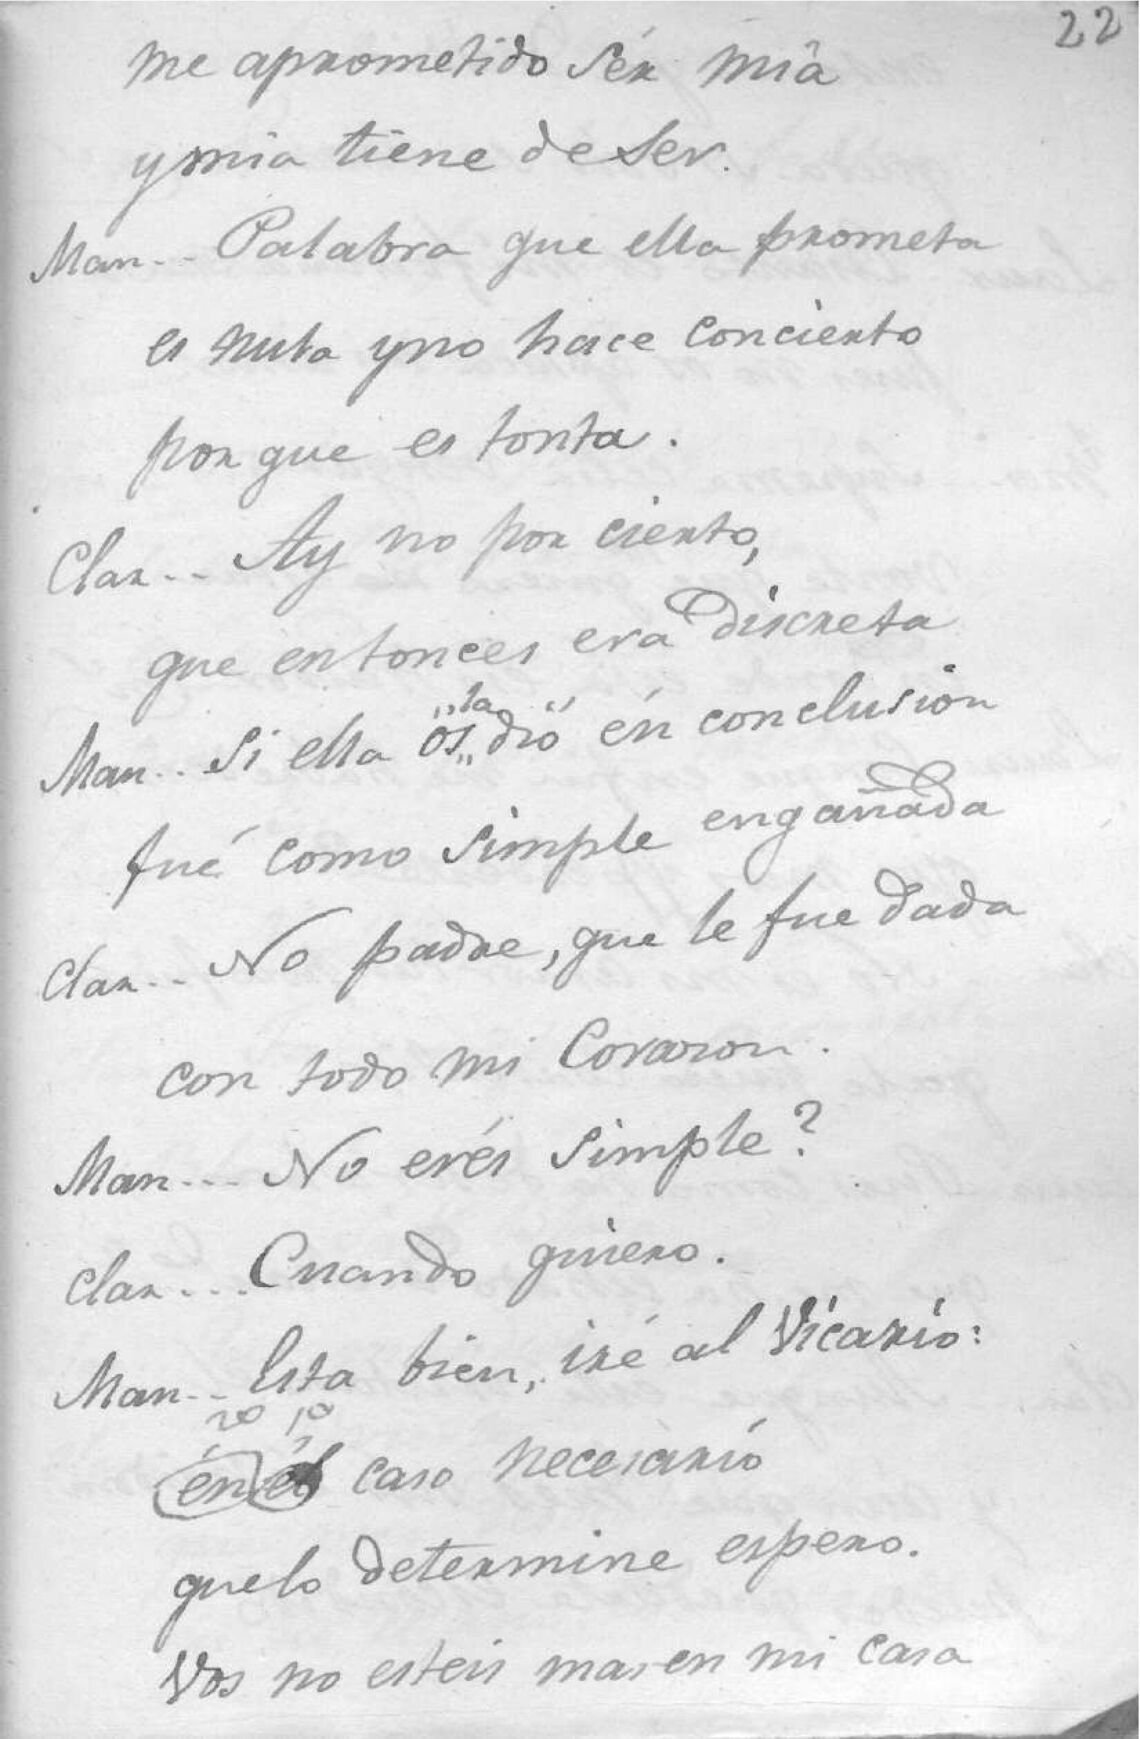 22
me aprometido sér mia
y mia tiene de ser.
Man... Palabra que ella prometa
es nula y no hace concierto
por que es tonta.
Clar... Ay no por cierto,
que entonces era discreta
Man... Si ella os,, "la dió" én conclusion
fué como simple engañada
Clar... No padre, que le fue dada
con todo mi Corazon.
Man... No erés simple?
Clar... Cuando quiero.
Man... Esta bien, iré al Vicario:
én él caso necesario
quelo determine espero.
Vos no esteis mas en mi casa